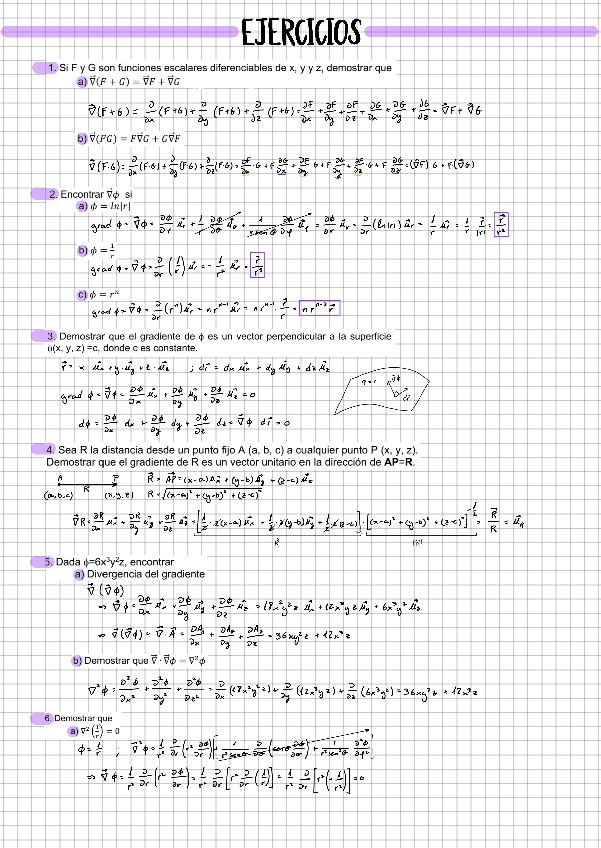 EJERCICIOS
1. Si F y G son funciones escalares diferenciables de x, y y z, demostrar que
a) ∇⃗(F + G) = ∇⃗F + ∇⃗G
∇⃗(F+G) = ∂/∂x (F+G) + ∂/∂y (F+G) + ∂/∂z (F+G) = ∂F/∂x + ∂F/∂y + ∂F/∂z + ∂G/∂x + ∂G/∂y + ∂G/∂z = ∇⃗F + ∇⃗G
b) ∇⃗(FG) = F∇⃗G + G∇⃗F
∇⃗(F·G) = ∂/∂x (F·G) + ∂/∂y (F·G) + ∂/∂z (F·G) = ∂F/∂x · G + F ∂G/∂x + ∂F/∂y G + F ∂G/∂y + ∂F/∂z · G + F ∂G/∂z = (∇⃗F) G + F (∇⃗G)
2. Encontrar ∇⃗ϕ si
a) ϕ = ln|r|
grad ϕ = ∇⃗ϕ = ∂ϕ/∂r u⃗r + 1/r ∂ϕ/∂θ u⃗θ + 1/(r senθ) ∂ϕ/∂φ u⃗φ = ∂ϕ/∂r u⃗r = ∂/∂r (ln|r|) u⃗r = 1/r u⃗r = 1/r · r⃗/|r| = r⃗/r²
b) ϕ = 1/r
grad ϕ = ∇⃗ϕ = ∂/∂r (1/r) u⃗r = - 1/r² u⃗r = r⃗/r³
c) ϕ = rⁿ
grad ϕ = ∇⃗ϕ = ∂/∂r (rⁿ) u⃗r = n rⁿ⁻¹ u⃗r = n rⁿ⁻¹ · r⃗/r = n rⁿ⁻² r⃗
3. Demostrar que el gradiente de ϕ es un vector perpendicular a la superficie
θ(x, y, z) =c, donde c es constante.
r⃗ = x u⃗x + y·u⃗y + z·u⃗z ; dr⃗ = dx u⃗x + dy u⃗y + dz u⃗z
grad ϕ = ∇⃗ϕ = ∂ϕ/∂x u⃗x + ∂ϕ/∂y u⃗y + ∂ϕ/∂z u⃗z = 0
∇⃗ϕ
dϕ = ∂ϕ/∂x dx + ∂ϕ/∂y dy + ∂ϕ/∂z dz = ∇⃗ϕ dr⃗ = 0
4. Sea R la distancia desde un punto fijo A (a, b, c) a cualquier punto P (x, y, z).
Demostrar que el gradiente de R es un vector unitario en la dirección de AP=R.
A P R⃗ = AP⃗ = (x-a) u⃗x + (y-b) u⃗y + (z-c) u⃗z
(a,b,c) R (x,y,z) R = √((x-a)² + (y-b)² + (z-c)²)
∇⃗R = ∂R/∂x u⃗x + ∂R/∂y u⃗y + ∂R/∂z u⃗z = [1/2 · 2(x-a) u⃗x + 1/2 · 2(y-b) u⃗y + 1/2 · 2(z-c)] · [(x-a)² + (y-b)² + (z-c)²]^(-1/2) = R⃗/R = u⃗R
R⃗ |R|
5. Dada ϕ=6x³y²z, encontrar
a) Divergencia del gradiente
∇⃗(∇⃗ϕ)
⇒ ∇⃗ϕ = ∂ϕ/∂x u⃗x + ∂ϕ/∂y u⃗y + ∂ϕ/∂z u⃗z = 18x²y²z u⃗x + 12x³yz u⃗y + 6x³y² u⃗z
⇒ ∇⃗(∇⃗ϕ) = ∇⃗ · A⃗ = ∂Ax/∂x + ∂Ay/∂y + ∂Az/∂z = 36xy²z + 12x³z
b) Demostrar que ∇⃗ · ∇⃗ϕ = ∇²ϕ
∇²ϕ = ∂²ϕ/∂x² + ∂²ϕ/∂y² + ∂²ϕ/∂z² = ∂/∂x (18x²y²z) + ∂/∂y (12x³yz) + ∂/∂z (6x³y²) = 36xy²z + 12x³z
6. Demostrar que
a) ∇²(1/r) = 0
ϕ = 1/r ; ∇⃗²ϕ = 1/r² ∂/∂r (r² ∂ϕ/∂r) + [1/(r² senθ) ∂/∂θ (senθ ∂ϕ/∂θ) + 1/(r² sen²θ) ∂²ϕ/∂φ²]
⇒ ∇⃗ϕ = 1/r² ∂/∂r (r² ∂ϕ/∂r) = 1/r² ∂/∂r [r² ∂/∂r (1/r)] = 1/r² ∂/∂r [r² (- 1/r²)] = 0